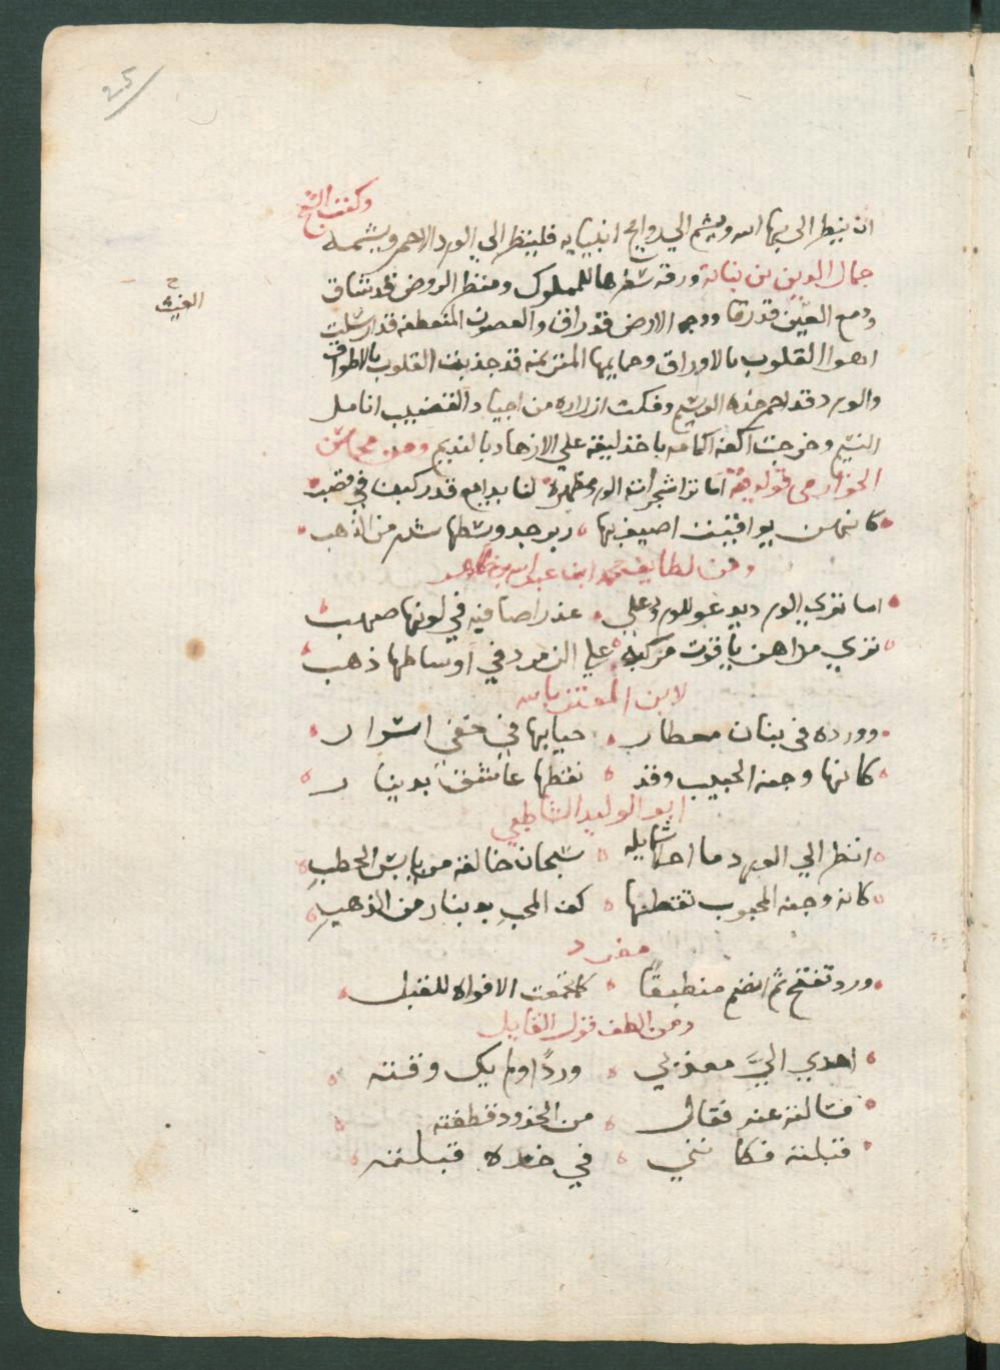 25
وكتب الشيخ
ان ينظر الى بهاء الله ويشم الي روايح انبيايه فلينظر الي الورد الاحمر ويشمه
جمال الدين بن نباتة ورقة سطرها المملوك ومنظر الروض قد شاق
ودمع العين قد رقا ووجه الارض قد راق والغصون المنعطفة قد ارسلت
اهوا القلوب بالاوراق وحمايمها المترنمة قد جذبت القلوب بالاطواق
والورد قد احمر خده الوسيم وفكت ازراره من اجياد القضيب انامل
النسيم وخرجت اكفه اكمامه باخذ ليقة علي الازهار بالتقديم ومن محاسن
الخوارزمي قوله هذه اما ترا شجرات الورد مظهرة لنا بدايع قد ركبن في قضب
كانهن يواقيت اضيف بها زبرجد وسطها شذر من الذهب
ومن لطايف محمد ابن عبد الله بن طاهر
اما تري الورد يدعو للورود علي عذرا صافية في لونها صهب
تري مداهن ياقوت مركبة علي الزمرد في اوساطها ذهب
لابن المعتز بالله
ووردة في بنان معطار حيا بها في خفي اسرار
كانها وجنة الحبيب وقد نقطها عاشق بدينار
ابو الوليد الشاطبي
انظر الي الورد ما احلا شمايله سبحان خالقه من يابس الحطب
كانه وجنة المحبوب نقطها كف المحب بدينار من الذهب
مفرد
ورد تفتح ثم انضم منطبقًا كما تجمعت الافواه للقبل
ومن الطف قول القايل
اهدي اليَّ معذبي وردًا ولم يك وقته
فسالته عنه فقال من الخدود قطفته
قبلته فكانني في خده قبلته